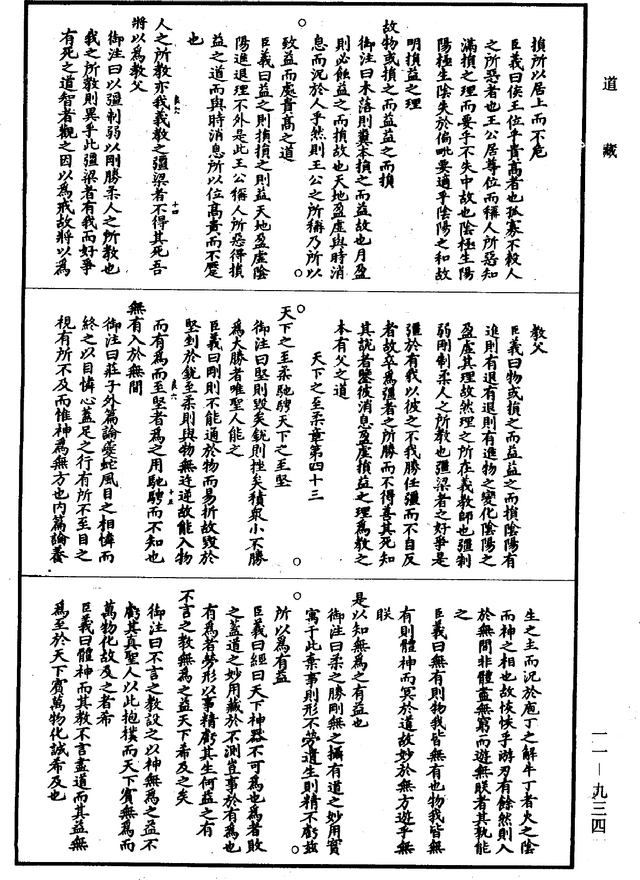 道藏
損所以居上而不危
臣義曰侯王位乎貴高者也孤寡不穀人
之所惡者也王公居尊位而稱人所惡知
滿損之理而要乎不失中故也陰極生陽
陽極生陰失於偏毗要適乎陰陽之和故
明損益之理
故物或損之而益益之而損
御注曰木落則糞本損之而益故也月盈
則必蝕益之而損故也天地盈虛與時消
息而況於人乎然則王公之所稱乃所以
致益而處貴高之道
臣義曰益之則損損之則益天地盈虛陰
陽進退理不外是此王公稱人所惡得損
益之道而與時消息所以位高貴而不屢
也
人之所教亦我義教之彊梁者不得其死吾
將以為教父
御注曰以彊制弱以剛勝柔人之所教也
我之所教則異乎此彊梁者有我而好爭
有死之道智者觀之因以為戒故將以為
教父
臣義曰物或損之而益益之而損陰陽有
進則有退有退則有進物之變化陰陽之
盈虛其理故然理之所在義教師也彊制
弱剛制柔人之所教也彊梁者之好爭是
彊於有我以彼之不我勝任彊而不自反
者故卒為彊者之所勝而不得善其死知
其說者鑒彼消息盈虛損益之理為教之
本有父之道
天下之至柔章第四十三
天下之至柔馳騁天下之至堅
御注曰堅則毀矣銳則挫矣積眾小不勝
為大勝者唯聖人能之
臣義曰剛則不能通於物而易折故毀於
堅剉於銳至柔則與物無迕逆故能入物
而有為而至堅者為之用馳騁而不知也
無有入於無間
御注曰莊子外篇論夔蛇風目之相憐而
終之以目憐心蓋足之行有所不至目之
視有所不及而惟神為無方也內篇論養
生之主而況於庖丁之解牛丁者火之陰
而神之相也故恢恢乎游刃有餘然則入
於無間非體盡無窮而遊無朕者其孰能
之
臣義曰無有則物我皆無有也物我皆無
有則體神而冥於道故妙於無方遊乎無
朕
是以知無為之有益也
御注曰柔之勝剛無之攝有道之妙用實
寓于此棄事則形不勞遺生則精不虧故
所以為有益
臣義曰經曰天下神器不可為也為者敗
之蓋道之妙用藏於不測豈事於有為也
有為者勞形以事精虧其生何益之有
不言之教無為之益天下希及之矣
御注曰不言之教設之以神無為之益不
虧其真聖人以此抱樸而天下賓無為而
萬物化故及之者希
臣義曰體神而其教不言盡道而其益無
為至於天下賓萬物化誠希及也
一一—九三四